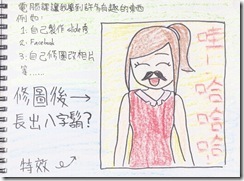 電腦課讓我學到許多有趣的東西
例如:
1.自己製作
2.Facebook
3.自己修圖改相片
等……
修圖後→
長出八字鬍?
特效
哈哈哈哈